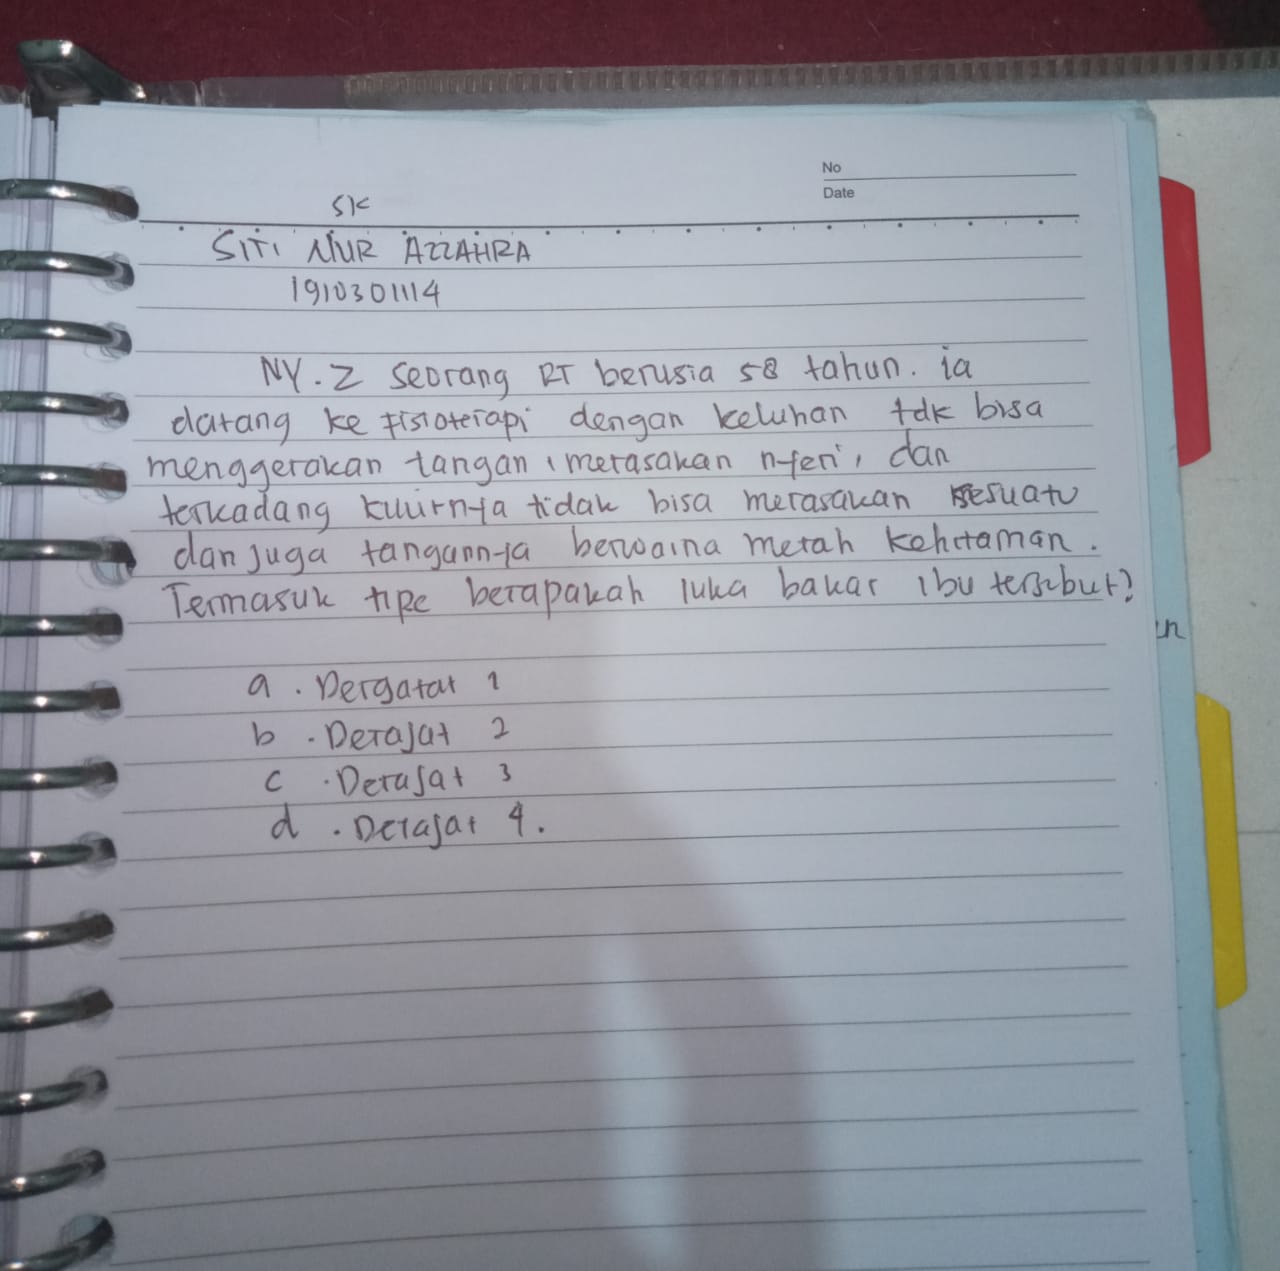 No
Date
SK
SITI NUR AZZAHRA
1910301114
NY. Z seorang RT berusia 58 tahun. ia
datang ke fisioterapi dengan keluhan tdk bisa
menggerakan tangan, merasakan nyeri, dan
terkadang kulitnya tidak bisa merasakan sesuatu
dan juga tangannya berwarna merah kehitaman.
Termasuk tipe berapakah luka bakar ibu tersebut?
a. Dergatat 1
b. Derajat 2
c. Derajat 3
d. Derajat 4.